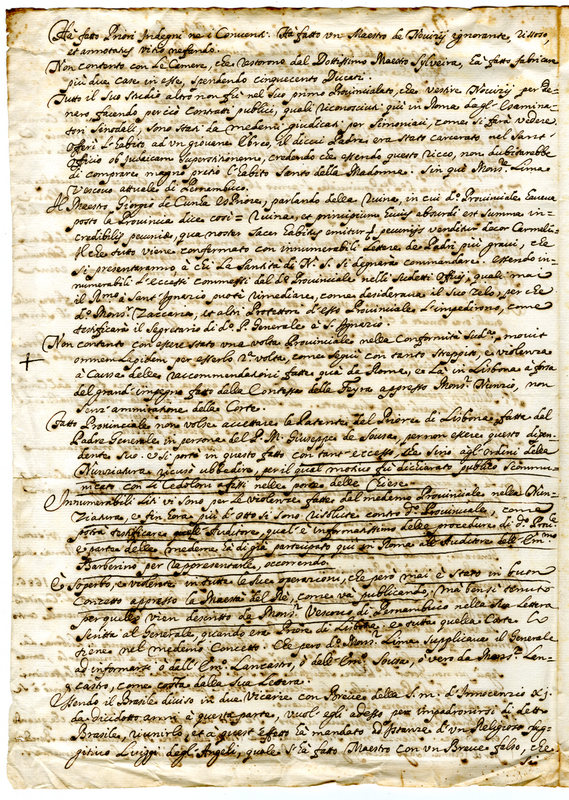 Hà fatto Priori Indegni ne i Conventi. Hà fatto un Maestro de Novizij ignorante, vitioso,
et annotato vitio nefando.
Non contento con le Camere, che restorono dal Dottissimo Maestro Sylveira, hà fatto fabricare
più due case in esse, spendendo cinquecento Ducati.
Tutto il suo studio altro non fù nel suo primo Provincialato, che vestire Novizij per de-
naro, facendo perciò contratti publici, quali riconosciuti quì in Roma dagl' Esamina-
tori Sinodali, sono stati da medemi giudicati per simoniaci, come si farà vedere.
Offerì l'habito ad un giovene Ebreo, il di cui Padre era stato carcerato nel Sant'
Officio ob Judaicam superstitionem, credendo che essendo questo ricco, non dubitarebbe
di comprare magno pretio l'habito Santo della Madonna. Sin quì Monsr. Lima
Vescovo attuale di Pernambuco.
Il Maestro Giorgio de Cunha Expriore, parlando della ruina, in cui do. Provinciale haveva
posto la Provincia dice così = Ruina, et principium huius absurdi est summa, in-
credibilis pecunia, qua noster sacer habitus emitur, pecunijs venditur decor Carmeli =
Il che tutto viene confirmato con innumerabili lettere de Padri più gravi, che
si presentaranno à chi la Santità de N. S. si degnarà commandare. Essendo in-
numerabili l'eccessi commessi dal do. Provinciale nelli sudetti offitij, quali mai
il Rmo. à Sant'Ignazio potè rimediare, come desiderava il suo zelo, per che
do. Monsr. Zaccaria, et altri Protettori d'esso Provinciale l'impedirono, come
testificarà il Segretario di do. P. Generale à S. Ignazio.
Non contento con essere stato una volta Provinciale nella conformità suda., movit
omnem lapidem per esserlo 2a. volta, come seguì con tanto streppito, e violenza
à causa delle raccommandationi fatte quà da Roma, e là in Lisbona à forza
del grand' impegno fatto dalla Contessa della Feyra appresso Monsr. Nunzio, non
senz' ammiratione della Corte.
Fatto Provinciale non volse accettare la Patente del Priore di Lisbona fatta dal
Padre Generale in persona del P. M. Giuseppe de Sousa, per non essere questo dipen-
dente suo. E si portò in questo fatto con tant' eccesso, che sino agl' Ordini della
Nunziatura ricusò ubbedire, per il qual motivo fù dichiarato publico scommu-
nicato con li Cedoloni affissi nelle porte delle Chiese.
Innumerabili liti vi sono per le violenze fatte dal medemo Provinciale nella Nun-
ziatura, e fin hora più d'otto si sono rissolute contro do. Provinciale, come
potrà testificare quell' Auditore, qual' è informatissimo delle procedure di do. Prole.
e parte delle medeme hà di già participato quì in Roma all' Auditore dell' Emmo.
Barberino per rapresentarle, occorrendo.
È soperbo, e violento in tutte le sue operazioni, che però mai è stato in buon
concetto appresso la Maestà del Rè, come và publicando, mà bensì tenuto
per quello vien descritto da Monsr. Vescovo di Pernambuco nella sua lettera
scritta al Generale, quando era Priore di Lisbona: e tutta quella Corte lo
tiene nel medemo concetto. Che però do. Monsr. Lima supplicava il Generale
ad informarsi ò dall' Emo. Lancastro, ò dell' Emo. Sousa, ò vero da Monsr. Len-
castro, come consta dalla sua lettera.
Essendo il Brasile diviso in due Vicarie con Breve della S. m. d'Innocenzio XI.
da dicidotto anni à questa parte, vuol' egli adesso per impadronirsi di detto
Brasile, riunirlo, et à quest' effetto hà mandato ad istanza d'un Religioso fug-
gitivo Luiggi degl' Angeli, quale s'hà fatto Maestro con un Breve falso, che